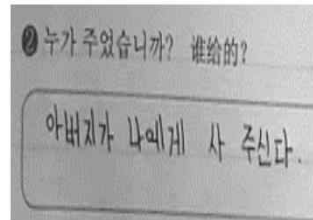 ❷ 누가 주었습니까? 谁给的?
아버지가 나에게 사 주신다.